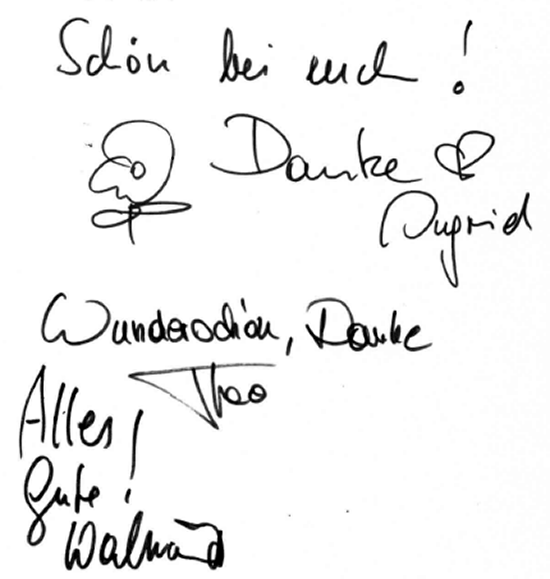 Schön bei euch!
Danke
Ingrid
Wunderschön, Danke
Theo
Alles
Gute!